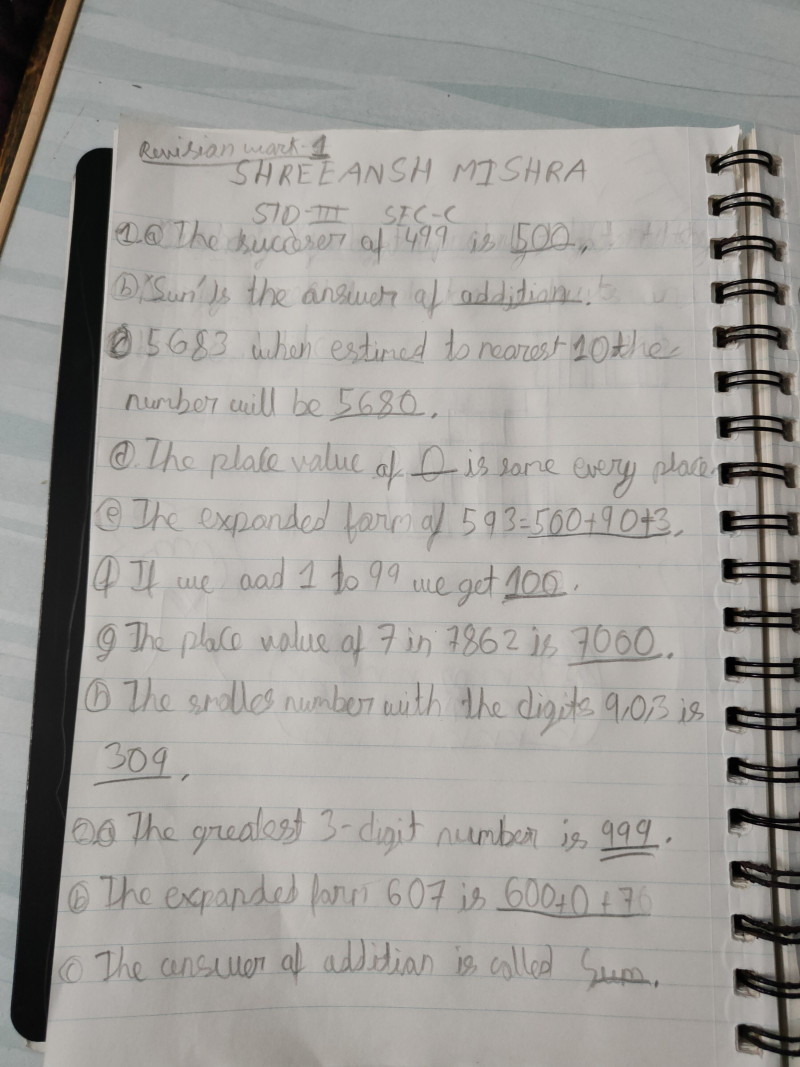 Revision work-1
SHREEANSH MISHRA
STD-III SEC-C
1. a The succoser of 499 is 500.
b 'Sum' is the answer of addition.
c 5683 when estimed to nearest 10 the
number will be 5680.
d The place value of 0 is same every place
e The expanded form of 593=500+90+3.
f If we aad 1 to 99 we get 100.
g The place value of 7 in 7862 is 7000.
h The smalles number with the digits 9,0,3 is
309.
2. a The greatest 3-digit number is 999.
b The expanded form 607 is 600+0+7
c The answer of addition is called Sum.